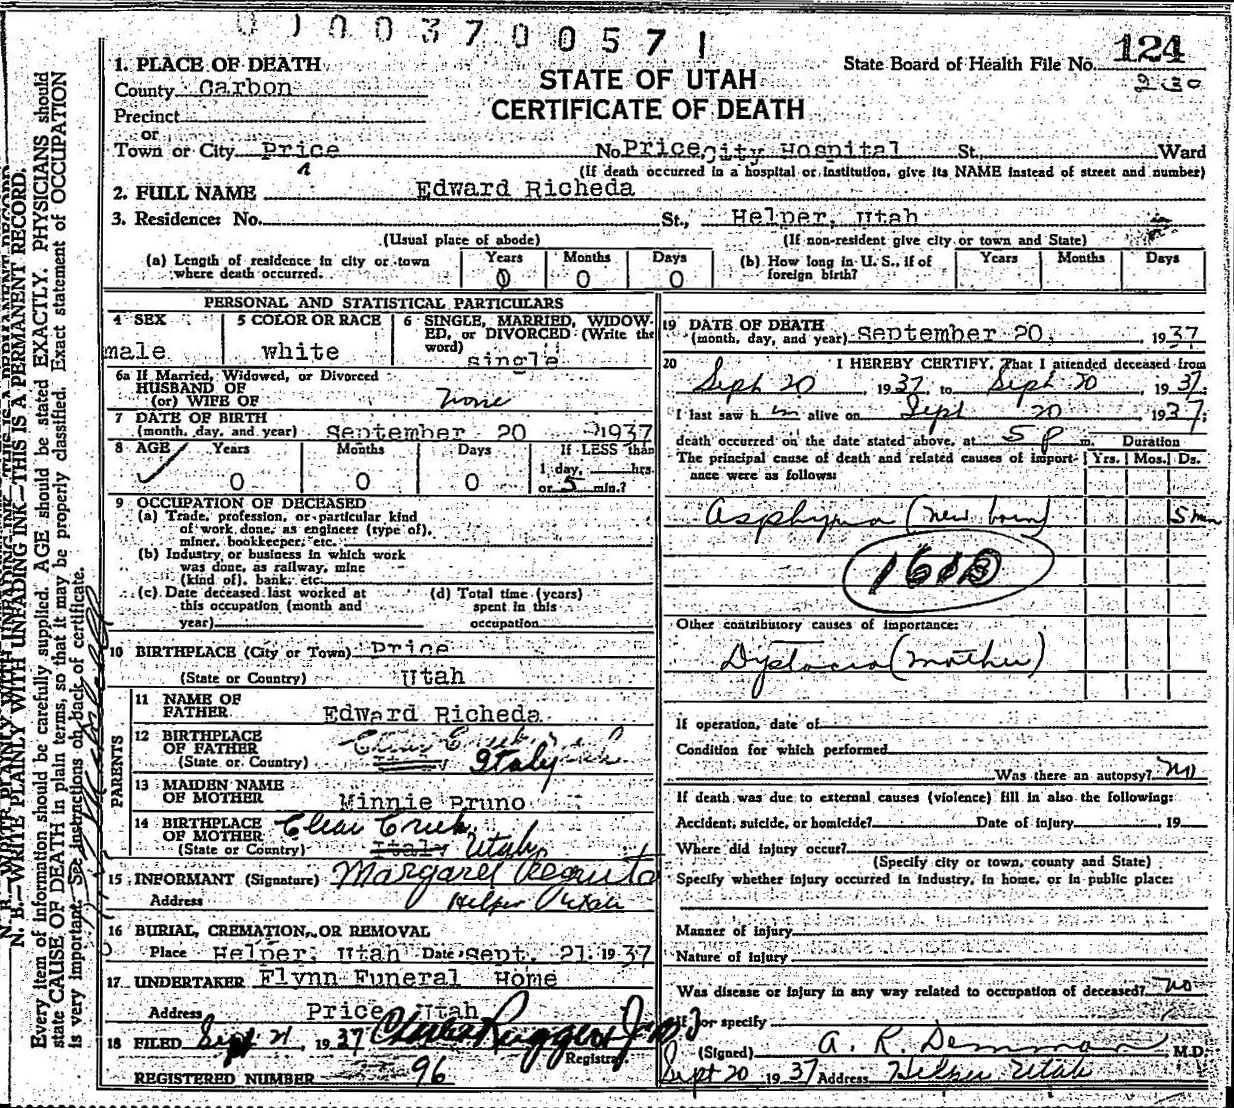 0 1 0 0 3 7 0 0 5 7 1
STATE OF UTAH
CERTIFICATE OF DEATH
State Board of Health File No. 124
1. PLACE OF DEATH
County Carbon
Precinct
or
Town or City Price No. Price City Hospital St., Ward
(If death occurred in a hospital or institution, give its NAME instead of street and number)
2. FULL NAME Edward Richeda
3. Residence: No. St., Helper, Utah
(Usual place of abode) (If non-resident give city or town and State)
(a) Length of residence in city or town where death occurred. Years 0 Months 0 Days 0
(b) How long in U. S., if of foreign birth? Years Months Days
PERSONAL AND STATISTICAL PARTICULARS
4 SEX male
5 COLOR OR RACE white
6 SINGLE, MARRIED, WIDOWED, or DIVORCED (Write the word) single
6a If Married, Widowed, or Divorced
HUSBAND OF
(or) WIFE OF none
7 DATE OF BIRTH
(month, day, and year) September 20 1937
8 AGE Years 0 Months 0 Days 0 If LESS than 1 day, hrs. or 5 min.?
9 OCCUPATION OF DECEASED
(a) Trade, profession, or particular kind
of work done, as engineer (type of),
miner, bookkeeper, etc.
(b) Industry or business in which work
was done, as railway, mine
(kind of), bank, etc.
(c) Date deceased last worked at
this occupation (month and
year)
(d) Total time (years)
spent in this
occupation
10 BIRTHPLACE (City or Town) Price
(State or Country) Utah
PARENTS
11 NAME OF
FATHER Edward Richeda
12 BIRTHPLACE
OF FATHER Clear Creek
(State or Country) Italy
13 MAIDEN NAME
OF MOTHER Minnie Bruno
14 BIRTHPLACE
OF MOTHER Clear Creek,
(State or Country) Italy Utah
15 INFORMANT (Signature) Margaret
Address Helper Utah
16 BURIAL, CREMATION, OR REMOVAL
Place Helper, Utah Date Sept. 21, 1937
17 UNDERTAKER Flynn Funeral Home
Address Price Utah
18 FILED Sept 21, 1937 Charles Ruggeri Jr M D
Registrar.
REGISTERED NUMBER 96
19 DATE OF DEATH
(month, day, and year) September 20, 1937
20 I HEREBY CERTIFY, That I attended deceased from
Sept 20 1937, to Sept 20 1937;
I last saw him alive on Sept 20 1937;
death occurred on the date stated above, at 5 P m. Duration
The principal cause of death and related causes of importance were as follows: Yrs. Mos. Ds.
Asphyxia (new born) 5 min
Other contributory causes of importance:
Dystocia (mother)
If operation, date of
Condition for which performed
Was there an autopsy? no
If death was due to external causes (violence) fill in also the following:
Accident, suicide, or homicide? Date of injury , 19
Where did injury occur?
(Specify city or town, county and State)
Specify whether injury occurred in industry, in home, or in public place:
Manner of injury
Nature of injury
Was disease or injury in any way related to occupation of deceased? no
If so specify
(Signed) A. R. Demman M.D.
Sept 20 1937 Address Helper Utah
N. B.—WRITE PLAINLY WITH UNFADING INK—THIS IS A PERMANENT RECORD.
Every item of information should be carefully supplied. AGE should be stated EXACTLY. PHYSICIANS should
state CAUSE OF DEATH in plain terms, so that it may be properly classified. Exact statement of OCCUPATION
is very important. See instructions on back of certificate.